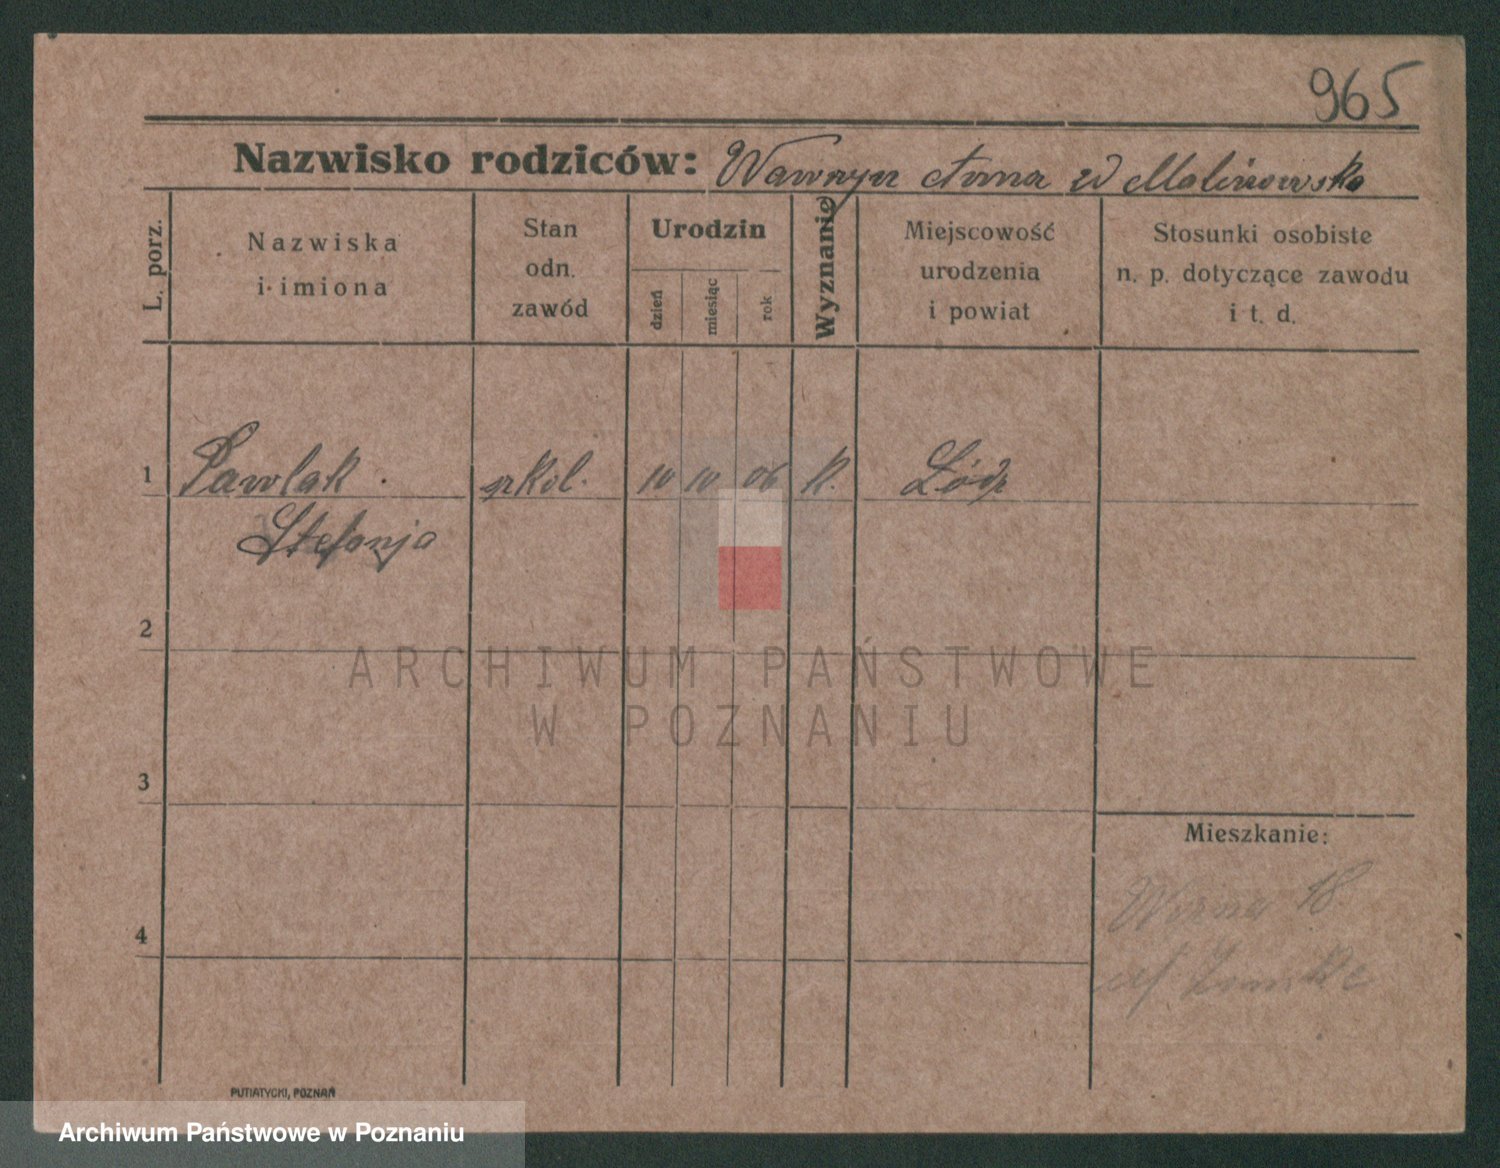 965
Nazwisko rodziców: Wawrzyn Anna z d Malinowska
L. porz.
Nazwiska
i imiona
Stan
odn.
zawód
Urodzin
dzień
miesiąc
rok
Wyznanie
Miejscowość
urodzenia
i powiat
Stosunki osobiste
n. p. dotyczące zawodu
i t. d.
1 Pawlak szkol. 10 10 06 k. Łódź
Stefanja
2
ARCHIWUM PAŃSTWOWE
W POZNANIU
3
Mieszkanie:
18
4
PUTIATYCKI, POZNAŃ
Archiwum Państwowe w Poznaniu